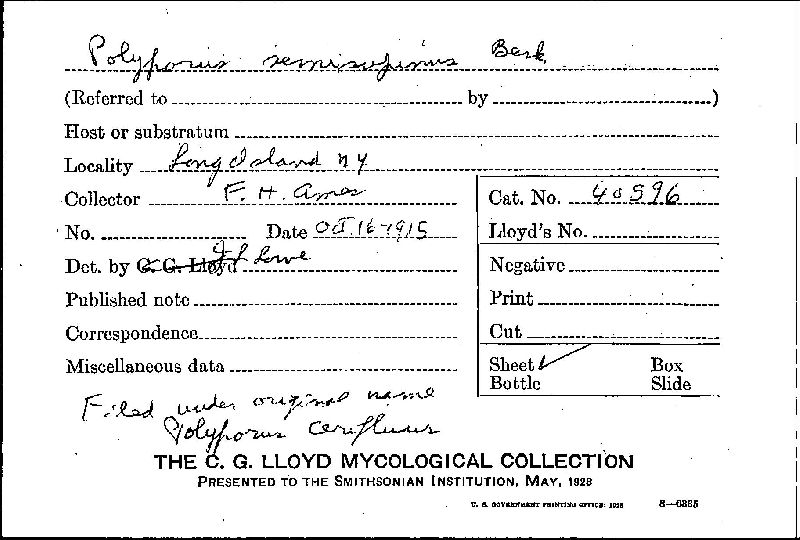 Polyporus semisupinus Berk
(Referred to by )
Host or substratum
Locality Long Island NY
Collector F. H. Ames
Cat. No. 40596
No. Date Oct. 16-1915
Lloyd's No.
Det. by C. G. Lloyd J L Lowe
Negative
Published note
Print
Correspondence
Cut
Miscellaneous data
Sheet ✓ Box
Bottle Slide
Filed under original name
Polyporus cerifluus
THE C. G. LLOYD MYCOLOGICAL COLLECTION
PRESENTED TO THE SMITHSONIAN INSTITUTION, MAY, 1928
U. S. GOVERNMENT PRINTING OFFICE: 1928 8—6385